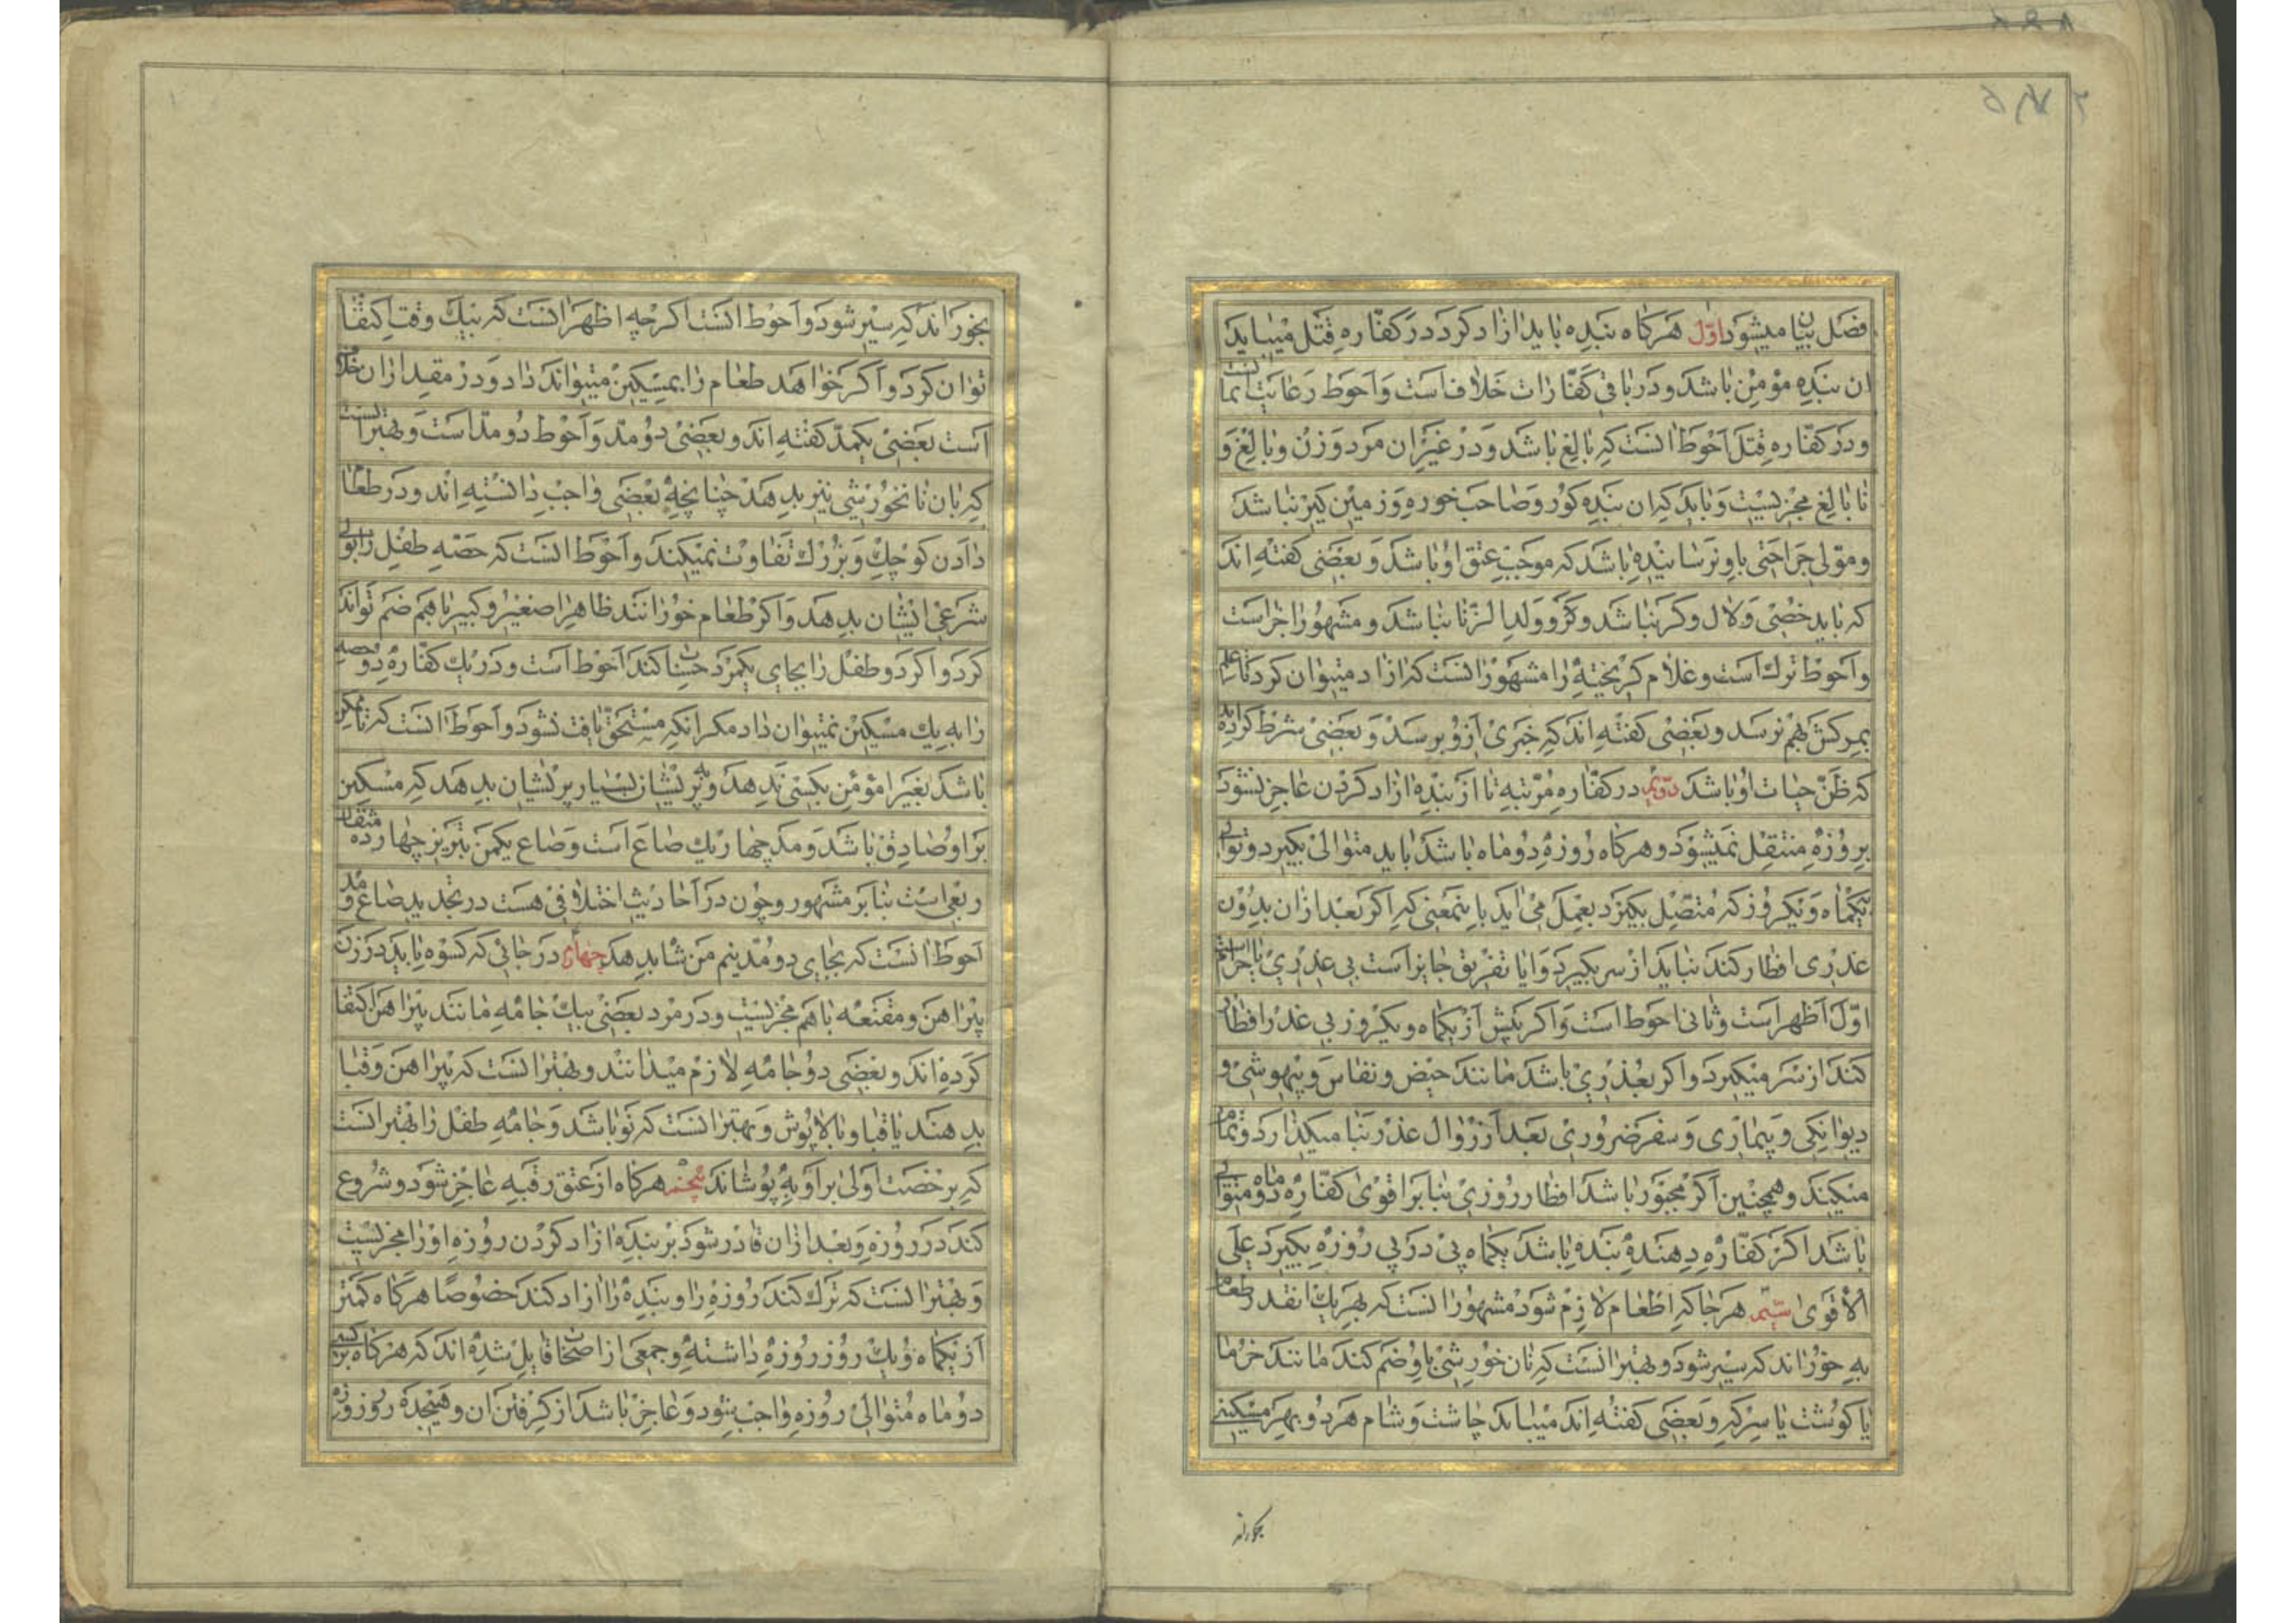 فصل بیان میشود اوّل هرکاه بنده باید ازاد کرد در کفّاره قتل میباید
ان بنده مؤمن باشد و در باقی کفّارات خلاف است و احوط رعایت ایمانست
و در کفّاره قتل احوط انست که بالغ باشد و در غیر ان مرد و زن و بالغ و
نابالغ مجزیست و باید که ان بنده کور و صاحب خوره و زمین کیر نباشد
و مولی جراحتی باو نرسانیده باشد که موجب عتق او باشد و بعضی کفته اند
که باید خصی و لال و کر نباشد و کر و ولد الزّنا نباشد و مشهور اجزاست
و احوط ترک است و غلام کریخته را مشهور انست که ازاد میتوان کرد تا علم
بمرکش بهم نرسد و بعضی کفته اند که خبری از و برسد و بعضی شرط کرده اند
که ظنّ حیات او باشد دوّیم در کفّاره مرتبه تا از بنده ازاد کردن عاجز نشود
بروزه منتقل نمیشود و هرکاه روزه دو ماه باشد باید متوالی بکیرد و توالی
بیکماه و یکروز که متصل بکیرد بعمل می اید باینمعنی که اکر بعد از ان بدون
عذری افطار کند نباید از سر بکیرد و ایا تفریق جایز است بی عذری یا حرامست
اوّل اظهر است و ثانی احوط است و اکر پیش از یکماه و یکروز بی عذر افطار
کند از سر میکیرد و اکر بعذری باشد مانند حیض و نفاس و بیهوشی و
دیوانکی و بیماری و سفر ضروری بعد از زوال عذر بنا میکذارد و تمام
میکند و همچنین اکر مجبور باشد افطار روزی بنا بر اقوی کفّاره دو ماه متوالی
باشد اکر کفّاره دهنده بنده باشد یکماه پی در پی روزه بکیرد علی
الاقوی سیّم هرجا که اطعام لازم شود مشهور انست که بهر یک انقدر طعام
به خوراند که سیر شود و بهتر انست که نان خورشی باو ضم کند مانند خرما
یا کوشت یا سرکه و بعضی کفته اند میباید چاشت و شام هر دو بهر مسکینی
بخوراند که سیر شود و احوط انست اکرچه اظهر انست که بیک وقت اکتفا
توان کرد و اکر خواهد طعام را بمسکین میتواند داد و در مقدار ان خلاف
است بعضی یکمدّ کفته اند و بعضی دو مدّ و احوط دو مدّ است و بهتر انست
که بان نانخورشی نیز بدهد چنانچه بعضی واجب دانسته اند و در طعام
دادن کوچک و بزرک تفاوت نمیکند و احوط انست که حصّه طفل را بولی
شرعی ایشان بدهد و اکر طعام خورانند ظاهرا صغیر و کبیر با هم ضم تواند
کرد و اکر دو طفل را بجای یکمرد حساب کند احوط است و در یک کفّاره دو حصه
را به یک مسکین نمیتوان داد مکر انکه مستحقّ یافت نشود و احوط انست که تا ممکن
باشد بغیر مؤمن بکسی ندهد و به پریشان بسیار پریشان بدهد که مسکین
بر او صادق باشد و مد چهار یک صاع است و صاع یکمن تبریز چهارده مثقال
و ربعی است بنا بر مشهور و چون در احادیث اختلافی هست در تحدید صاع و مد
احوط انست که بجای دو مد نیم من شاه بدهد چهارم در جائی که کسوه باید در زن
پیراهن و مقنعه با هم مجزیست و در مرد بعضی بیک جامه مانند پیراهن اکتفا
کرده اند و بعضی دو جامه لازم میدانند و بهتر انست که پیراهن و قبا
بدهند یا قبا و بالاپوش و بهتر انست که نو باشد و جامه طفل را بهتر انست
که برخصت اولی بر او به پوشاند پنجم هرکاه از عتق رقبه عاجز شود و شروع
کند در روزه و بعد از ان قادر شود بر بنده ازاد کردن روزه او را مجزیست
و بهتر انست که ترک کند روزه را و بنده را ازاد کند خصوصًا هرکاه کمتر
از یکماه و یک روز روزه داشته و جمعی از اصحاب قایل شده اند که هرکاه بر کسی
دو ماه متوالی روزه واجب شود و عاجز باشد از کرفتن ان و هیجده روز روزه
بخوراند